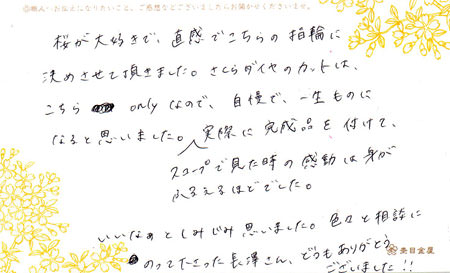 ◎嬉しいお伝えになりたいこと、ご感想などございましたらお聞かせくださいませ。
桜が大好きで、直感でこちらの指輪に
決めさせて頂きました。さくらダイヤのカットは、
こちら onlyなので、自慢で、一生ものに
なると思いました。実際に完成品を付けて、
スコープで見た時の感動は身が
ふるえるほどでした。
いいなぁとしみじみ思いました。色々と相談に
のって下さった長澤さん、どうもありがとう
ございました!!
杢目金屋